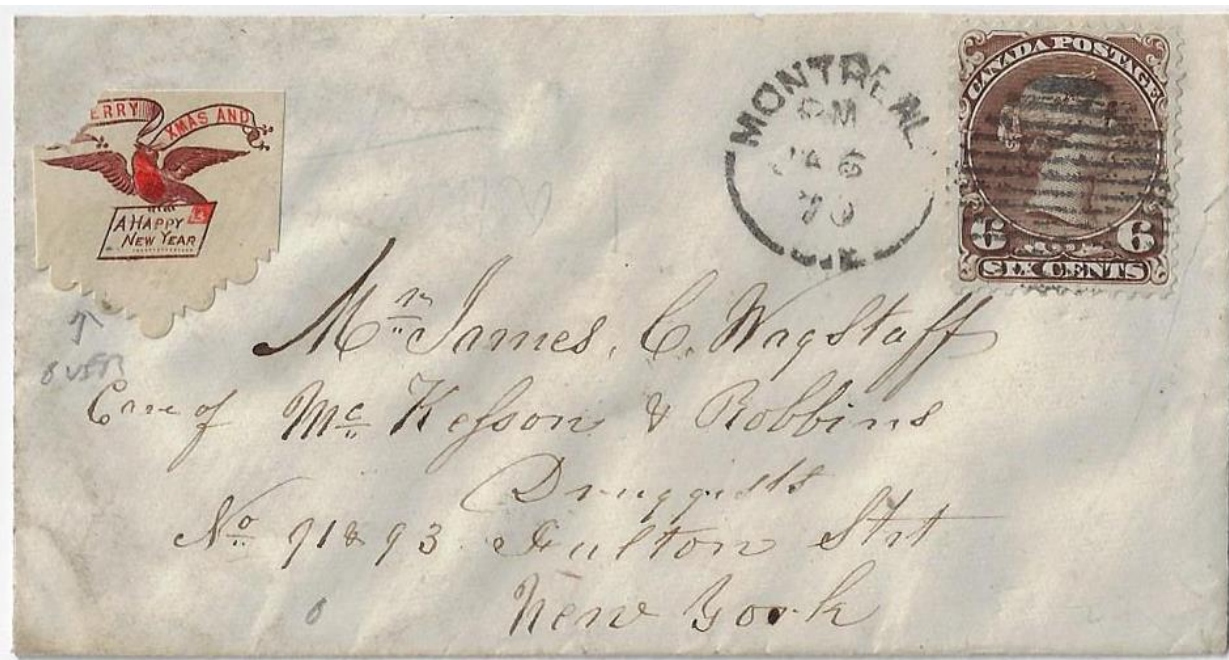 ERRY XMAS AND
A HAPPY
NEW YEAR
MONTREAL
PM
JA 6
70
CANADA POSTAGE
6 6
SIX CENTS
OVER
Mr. James. C. Wagstaff
Care of Mc Kesson & Robbins
Druggists
No 91 & 93 Fulton Strt
New York